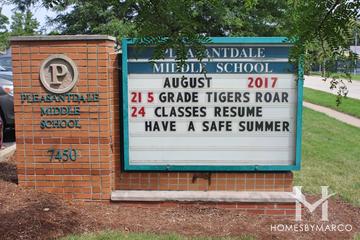 P
PLEASANTDALE
MIDDLE
SCHOOL
7450
PLEASANTDALE
MIDDLE SCHOOL
AUGUST 2017
21 5 GRADE TIGERS ROAR
24 CLASSES RESUME
HAVE A SAFE SUMMER
HOMESBYMARCO